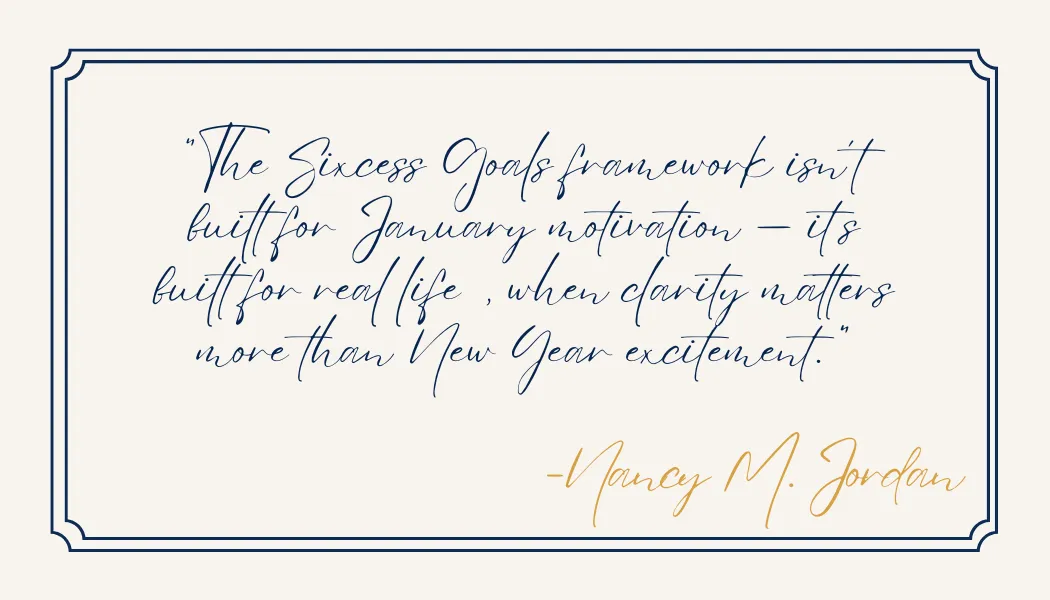 "The Sixcess Goals framework isn't
built for January motivation — it's
built for real life , when clarity matters
more than New Year excitement."
-Nancy M. Jordan